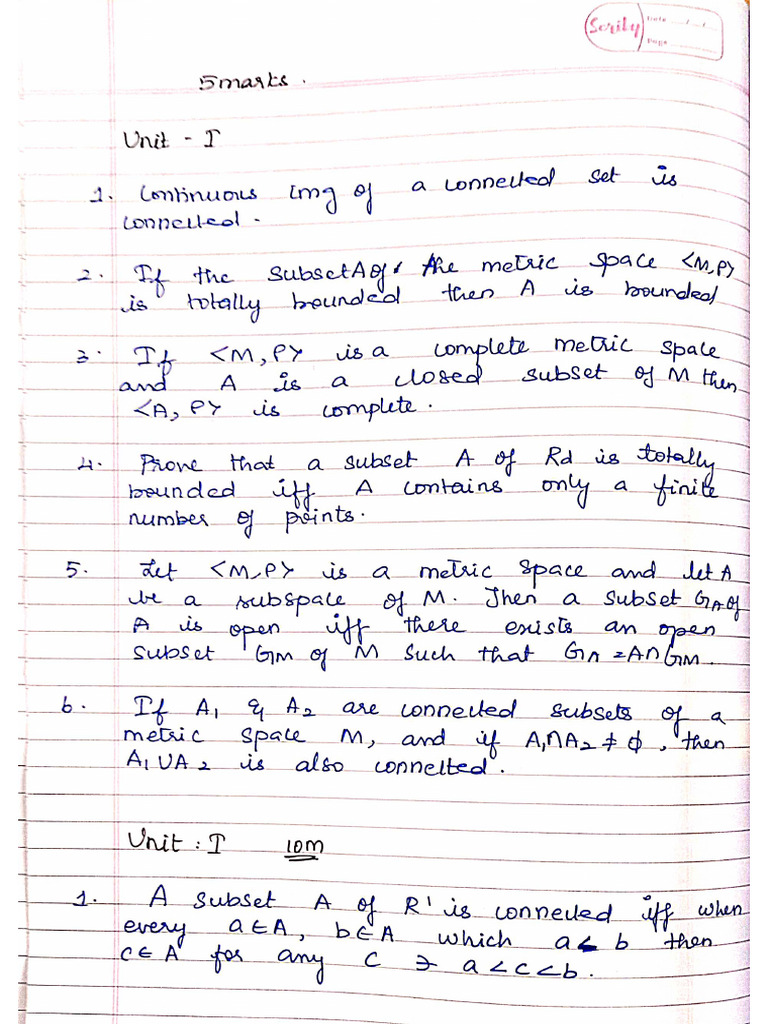 Scrily
Date ..../..../....
Page ............
5 marks.
Unit - I
1. Continuous img of a connected set is
connected.
2. If the subset A of the metric space <M, ρ>
is totally bounded then A is bounded
3. If <M, ρ> is a complete metric space
and A is a closed subset of M then
<A, ρ> is complete.
4. Prove that a subset A of Rd is totally
bounded iff A contains only a finite
number of points.
5. Let <M, ρ> is a metric space and let A
be a subspace of M. Then a subset GA of
A is open iff there exists an open
subset GM of M such that GA = A∩GM.
6. If A₁ & A₂ are connected subsets of a
metric space M, and if A₁∩A₂ ≠ ϕ, then
A₁∪A₂ is also connected.
Unit : I 10m
1. A subset A of R' is connected iff when
every a∈A, b∈A which a< b then
c∈A for any c ∋ a<c<b.